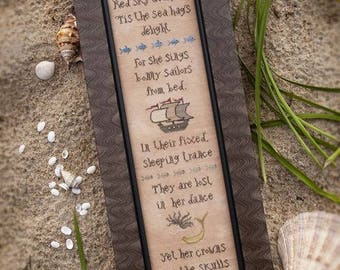 Red Sky
'Tis the sea hag's
delight.
for she sings
bonny sailors
from bed.
In their fixed,
sleeping trance
They are lost
in her dance
Yet her crowns
the skulls